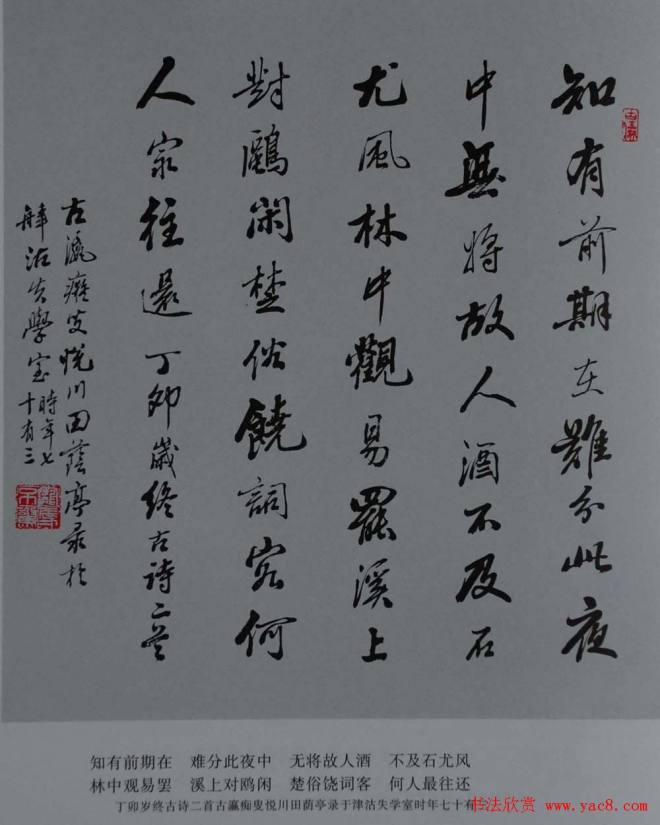 知有前期在難分此夜
中無將故人酒不及石
尤風林中觀易罷溪上
對鷗闲楚俗饒詞客何
人最往還丁卯歲终古诗二首
古瀛癡叟悦川田蔭亭录於
津沽失學室時年七
十有三
知有前期在 难分此夜中 无将故人酒 不及石尤风
林中观易罢 溪上对鸥闲 楚俗饶词客 何人最往还
丁卯岁终古诗二首古瀛痴叟悦川田荫亭录于津沽失学室时年七十有
书法欣赏
www.yac8.com